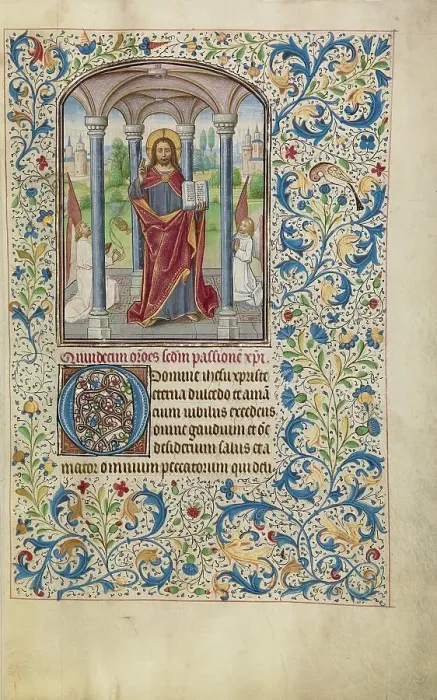 Quindecim orões sedm passione xpi.
O Domine ihesu xpriste
eterna dulcedo te amā
cium iubilus excedens
omne gaudium et oē
desiderium salus et a
mator omnium peccatorum qui deli